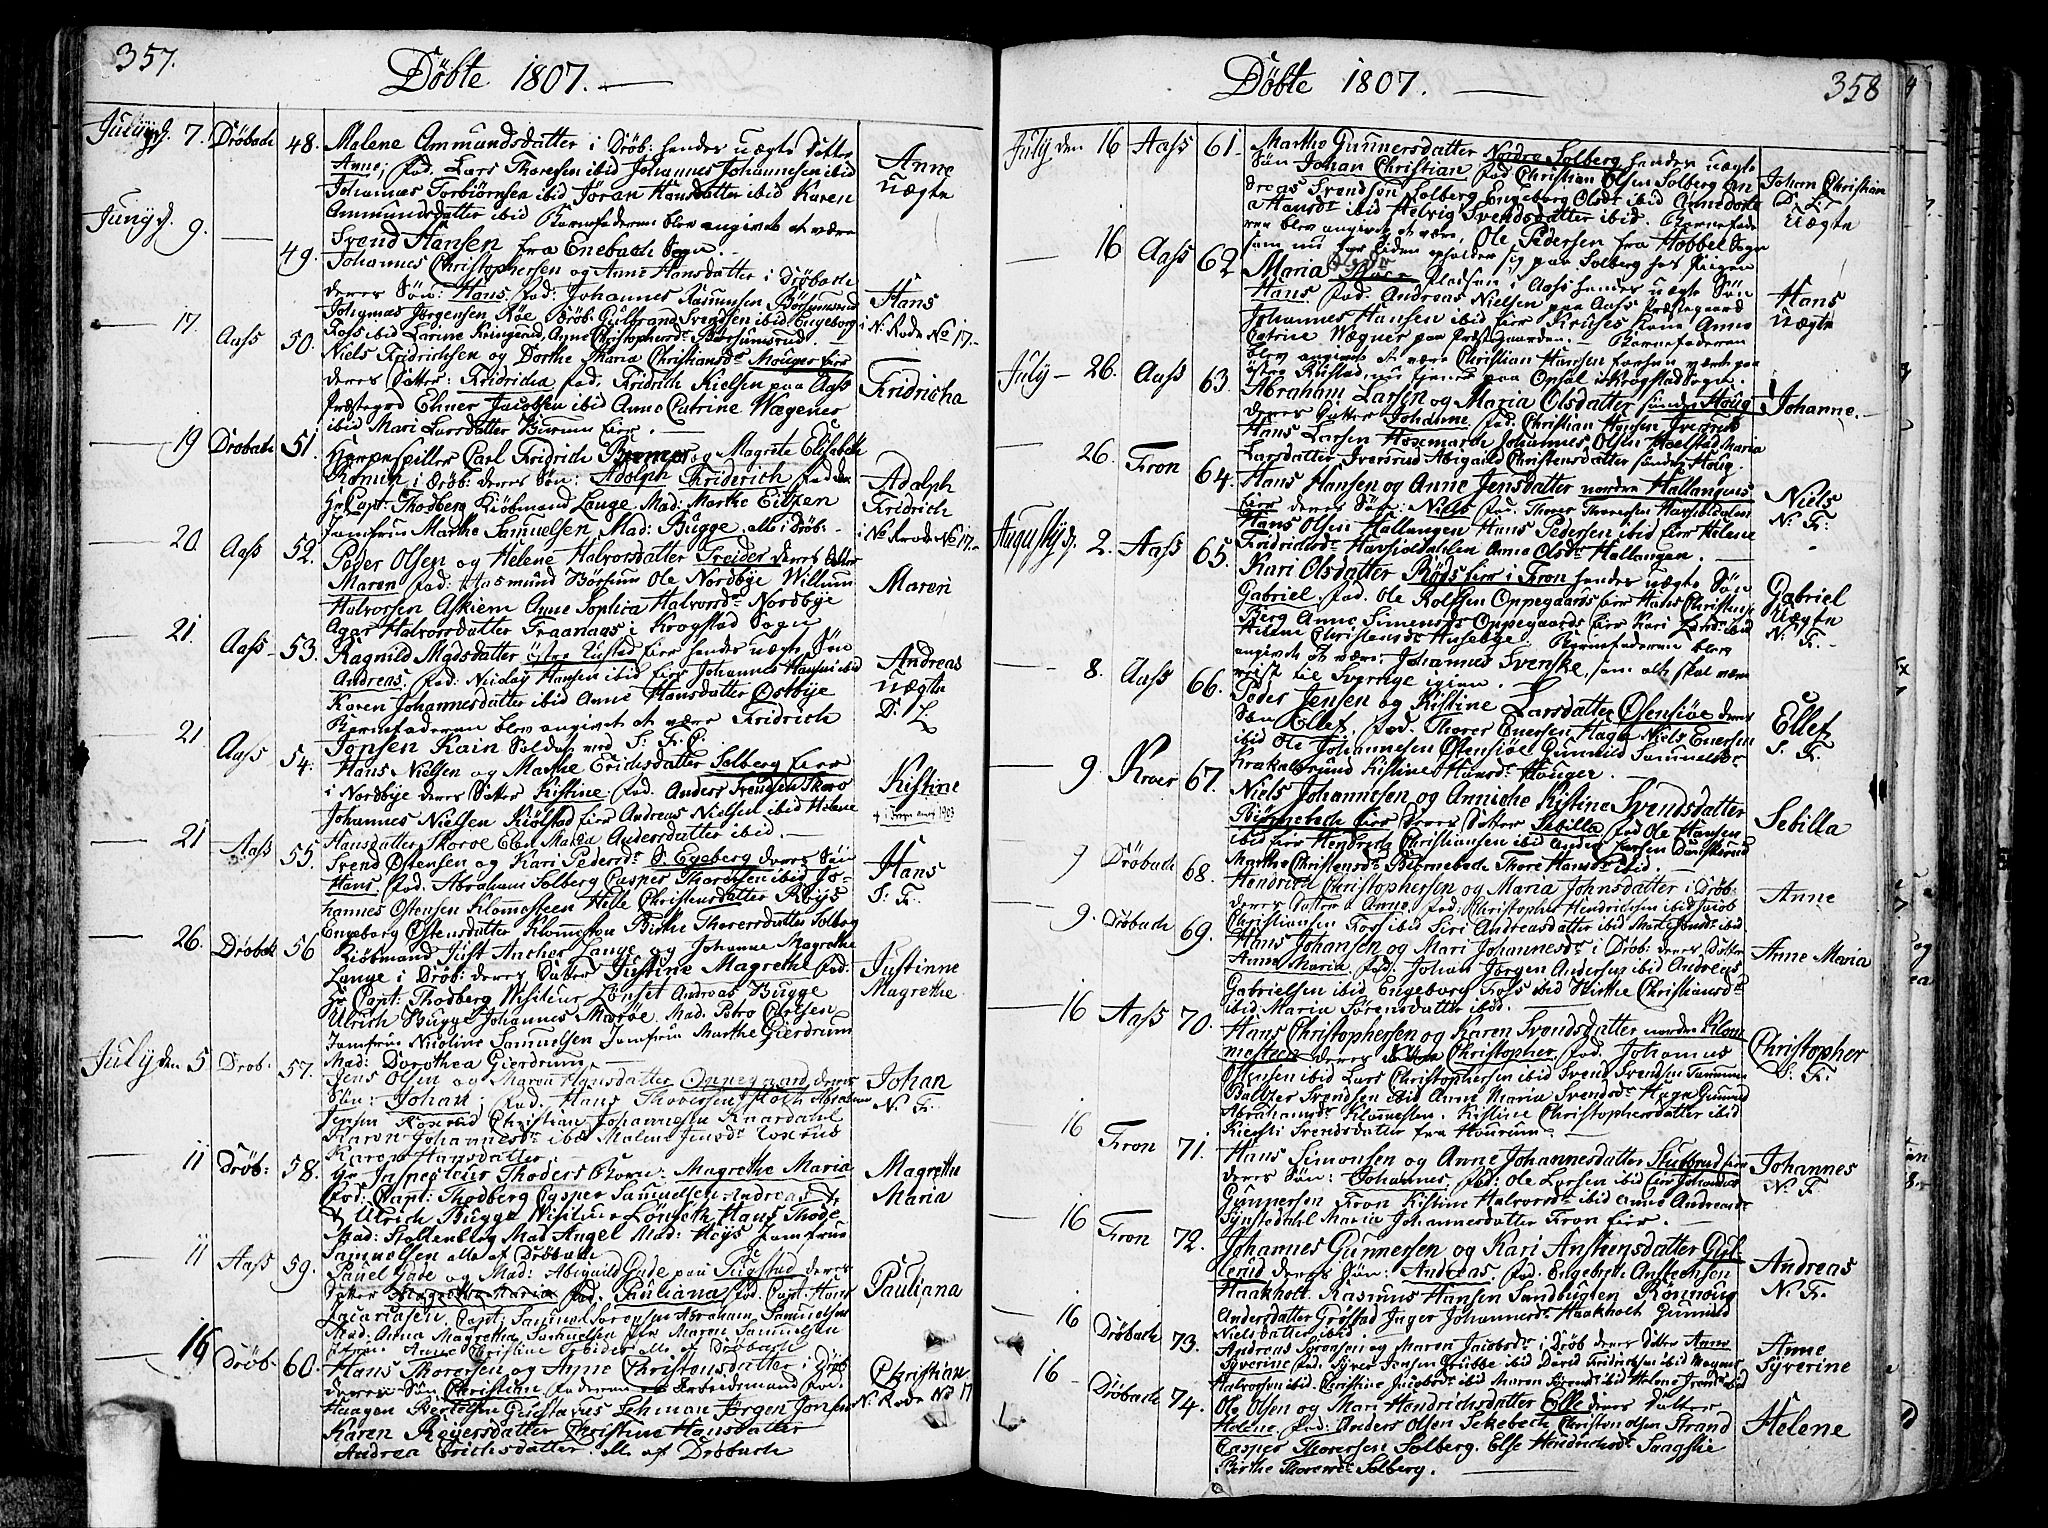 357.
Döbte 1807.
July d. 7. Dröbach 48. Malene Ammundsdatter i Dröb: hendes uægte Datter
Anne; fad. Lars Thoresen ibid Johannes Johannesen ibid
Johannes Torbiörnsen ibid Jöran Hansdatter ibid Karen
Ammundsdatter ibid Barnefaderen blev angivet at være
Svend Hansen fra Enebach Sogn.
Anne
uægte
Juny d. 9. 49. Johannes Christophersen og Anne Hansdatter i Dröbach
deres Sön: Hans, fad: Johannes Rasmusen Börsumsrud
Johannes Jörgensen Röe Dröb: Gulbrand Svendsen ibid Engeborg
Fors ibid Larine Ringerud, Anne Christophersd: Börsumsrud.
Hans
i N. Rode No 17.
17. Aass 50. Niels Fridrichsen og Dorthe Maria Christiansdr Houger eier
deres Datter: Fridricha fad. Fridrich Nielsen paa Aass
Præstegrd Elmer Jacobsen ibid Anne Catrine Wægener
ibid Mari Larsdatter Burum eier.
Fridricha
19 Dröbach 51. Harpespiller Carl Fridrich og Magrete Elisabeth
i Dröb: deres Sön: Adolph Friderich fadder
Hr Capt: Thodberg Kiöbmand Lange Mad: Marthe
Jomfru Marthe Samuelsen Mad: Bugge, alle i Dröb.
Adalph
Fridrich
i No Rode No 17.
20. Aass 52. Peder Olsen og Helene Halvorsdatter Treider deres Datter
Maren fad: Aasmund Börsum Ole Nordbye Willum
Halvorsen Askiem Anne Sophia Halvorsdr Nordbye
Agar Halvorsdatter Fraanaas i Krogstad Sogn
Maren
21. Aass 53. Ragnild Madsdatter östre Rustad eier hendes uægte Sön
Andreas, fad: Nicolay Hansen ibid eier Johannes Hansen ibid
Karen Johannesdatter ibid Anne Hansdatter Östbye
Barnefaderen blev angivet at være Fridrich
Jonsen Kain Soldat ved S: F. C.
Andreas
uægte
D. L
21 Aass 54. Hans Nielsen og Marthe Erichsdatter Solberg eier
i Nordbye deres Datter Kistine fad. Anders Svendsen Skoro
Johannes Nielsen Kiölstad eier Andreas Nielsen ibid Helene
Hansdatter Skoroe Else Maria Andersdatter ibid.
Kistine
21 Aass 55. Svend Östensen og Kari Pedersdr S. Egeberg deres Sön
Hans, fad. Abraham Solberg Casper Thoresen ibid Jo-
hannes Östensen Klommesteen Helle Christensdatter Röiis
Engeborg Östensdatter Klommesten Birthe Thoresdatter Solberg
Hans
S: F.
26. Dröbak 56 Kiöbmand Just Ancher Lange og Johanne Magrethe
Lange i Dröb: deres Datter Justine Magrethe fad:
Hr Capt: Thodberg Visiteur Lönset Andreas Bugge
Ulrich Bugge Johannes Maroe. Mad. Petro Carlsen
Jomfru Nicoline Samuelsen Jomfru Marthe Gierdrum
Mad: Dorothea Gierdrum
Justinne
Magrethe
July den 5 Drob. 57. Jens Olsen og Maren Hansdatter Oppegaard deres
Sön: Johan, fad. Hans Thoresen Abraham
Jensen Christian Johannesen Knardahl
Karen Johannesdr ibid Malene Jensdr
Karen Hansdatter
Johan
N. F.
11 Dröb: 58. Hr Inspecteur Thoders Barn: Magrethe Maria
fad: Capt: Thodberg Casper Samuelsen Andreas
& Ulrich Bugge Visiteur Lönseth Hans Thode
Mad: Stoltenberg Mad Angel Mad: Höijs Jomfrue
Samuelsen alle af Dröbach
Magrethe
Maria
11 Aass 59. Pauel Gade og Mad: Abigaild Gade paa Fugstad deres
Datter Pauliana fad. Capt: Hans
Zacariasen Capt: Samuel Sörensen Abraham Samuelsen
Mad: Anna Magretha Samuelsen Maren Samuelsen
Jfrue Anne Christine alle af Dröbach
Pauliana
16 Dröb. 60. Hans Thoresen og Anne Christensdatter i Dröb
deres Sön Christian, faderen er Arbeidsmand fad.
Haagen Bertelsen Gustavus Lehman Jörgen Jonsen
Karen Röyersdatter Christine Hansdatter
Andrea Erichsdatter. alle af Dröbach
Christian
N. Rode No 17
358
Döbte 1807.
July den 16 Aass 61. Marthe Gunnersdatter Nordre Solberg hendes uægte
Sön Johan Christian, fad Christian Olsen Solberg An-
dreas Svendsen Solberg Engeborg Olsdr ibid Annedorte
Hansdr ibid Helvig Svendsdatter ibid. Barnefade-
ren blev angivet at være, Ole Pedersen fra Hobbel Sogn
som nu for tiden opholder sig paa Solberg hos Pigen
Johan Christian
D. L.
Uægte
16 Aass 62 Maria Pladsen i Aass hendes uægte Sön
Hans, fad. Andreas Nielsen paa Aass Præstegaard
Johannes Hansen ibid eier Kruses Kone Anne
Catrine Wægner paa Præstegaarden. Barnefaderen
blev angivet at være Christian Hansen forhen været paa
östre Rustad nu tjener paa Opsal i Krogstad Sogn.
Hans
uægte
July 26. Aass 63. Abraham Larsen og Maria Olsdatter söndre Houg
deres Datter Johanne, fad. Christian Hansen Iversrud
Hans Larsen Holmark Johannes Olsen Haelstad Maria
Larsdatter Iversrud Abigaild Christensdatter söndre Houg.
Johanne.
26. Fron 64. Hans Hansen og Anne Jensdatter nordre Hallangens
eier deres Sön: Niels, fad: Thorer Thoresen Havsioldalen
Hans Olsen Hallangen Hans Pedersen ibid eier Helene
Fridrichsdr Havsioldahlen Anne Olsdr Hallangen.
Niels
N. F.
Augusty d. 2. Aass 65. Kari Olsdatter Röds eier i Fron hendes uægte Sön
Gabriel, fad. Ole Rolfsen Oppegaards eier Hans Christense
Berg Anne Simensdr Oppegaards eier Kari Larsdr ibid
Helene Christensdr Husebye. Barnefaderen blev
angivet at være, Johannes Svenske, som alt skal være
reist til Sverrige igien.
Gabriel
Uægte
N. F.
8. Aass 66. Peder Jensen og Kistine Larsdatter Östensiöe deres
Sön Ellef, fad. Thorer Enersen Haga Niels Enersen
ibid Ole Johannesen Östensiöe Gunnild Samuelsdr
Krakalbrund Kistine Hansdr Houger.
Ellef
S. F.
9 Kroer 67. Niels Johannesen og Anniche Kistine Svendsdatter
Birnebech eier deres Datter Sebilla fad Ole Hansen
ibid eier Hendrich Christiansen ibid Anders Larsen Danskerud
Marthe Christensdr Birnebech Thore Hansdr ibid.
Sebilla
9 Dröbach 68. Hendrich Christophersen og Maria Johnsdatter i Dröb.
deres Datter Anne, fad: Christopher Hendrichsen ibid Jacob
Christiansen Fors ibid Siri Andreasdatter ibid ibid
Anne
9. Dröbach 69. Hans Johansen og Mari Johannesdr i Dröb: deres Datter
Anne Maria, fad: Johan Jörgen Andersen ibid Andreas
Gabrielsen ibid Engeborg Fors ibid Birthe Christiansdr
ibid Maria Sörensdatter ibid.
Anne Maria
16 Aass 70. Hans Christophersen og Karen Svendsdatter nordre Klom-
mesteen deres Sön Christopher, fad. Johannes
Östensen ibid Lars Christophersen ibid Svend Svendsen
Baltzer Svendsen ibid Anne Maria Svendsdr Haga Gunnild
Abrahamsdr Klommesten. Kistine Christophersdatter ibid
Kiersti Svendsdatter fra Hourum
Christopher
S. F.
16 Fron 71. Hans Simonsen og Anne Johannesdatter Stubberud eier
deres Sön: Johannes, fad: Ole Larsen ibid eier Johannes
Gunnersen Fron Kistine Halvorsdr ibid Anne Andreasdr
Maria Johannesdatter Fron eier.
Johannes
N. F.
16 Fron 72. Johannes Gunnersen og Kari Anstensdatter Gul-
lerud deres Sön: Andreas, fad. Engebreth Anstensen
Haakholt Rasmus Hansen Sandbugten Rönnoug
Andersdatter Gröstad Inger Johannesdr Haakholt Gunnild
Nielsdatter ibid.
Andreas
N. F.
16 Dröbach 73. Andreas Syvensen og Maren Jacobsdr i Dröb deres Datter Anne
Syverine fad. Syver Jensen Grubbe ibid David Fridrichsen ibid Magnus
Halvorsen ibid. Christine Jacobsdr ibid Maren ibid Helene ibid
Anne
Syverine
16 Dröbach 74. Ole Olsen og Mari Hendrichsdatter Elle deres Datter
Helene, fad: Anders Olsen Sekebech Christen Olsen Strand
Casper Thoresen Solberg. Else Hendrichsdr Saagslie
Birthe Thoresdr Solberg.
Helene